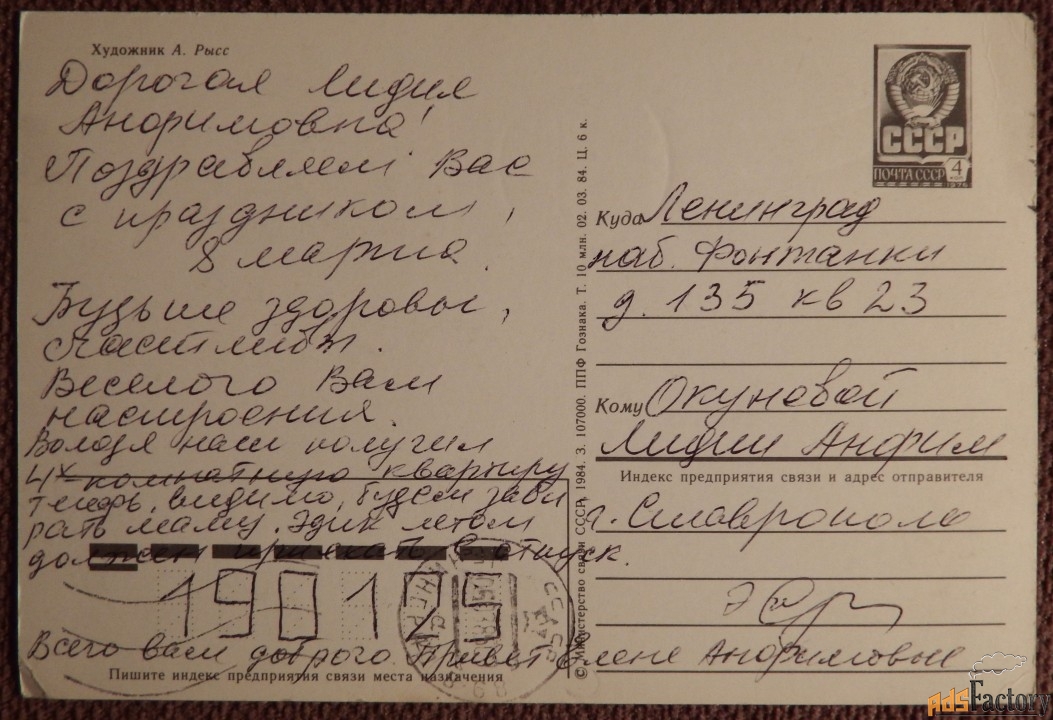 Художник А. Рысс
Дорогая Лидия
Анфимовна!
Поздравляем Вас
с праздником,
8 марта.
Будьте здоровы,
счастливы.
Веселого Вам
настроения.
Володя наш получил
4х комнатную квартиру
теперь, видимо, будем заби
рать маму. Эдик летом
должен приехать в отпуск.
190125
Всего вам доброго. Привет Елене Анфимовне
Пишите индекс предприятия связи места назначения
© Министерство связи СССР, 1984. З. 107000. ППФ Гознака. Т. 10 млн. 02. 03. 84. Ц. 6 к.
СССР
ПОЧТА СССР 4 коп
1976
Куда Ленинград
наб. Фонтанки
д. 135 кв 23
Кому Окуновой
Лидии Анфим
Индекс предприятия связи и адрес отправителя
г. Ставрополь
AdsFactory